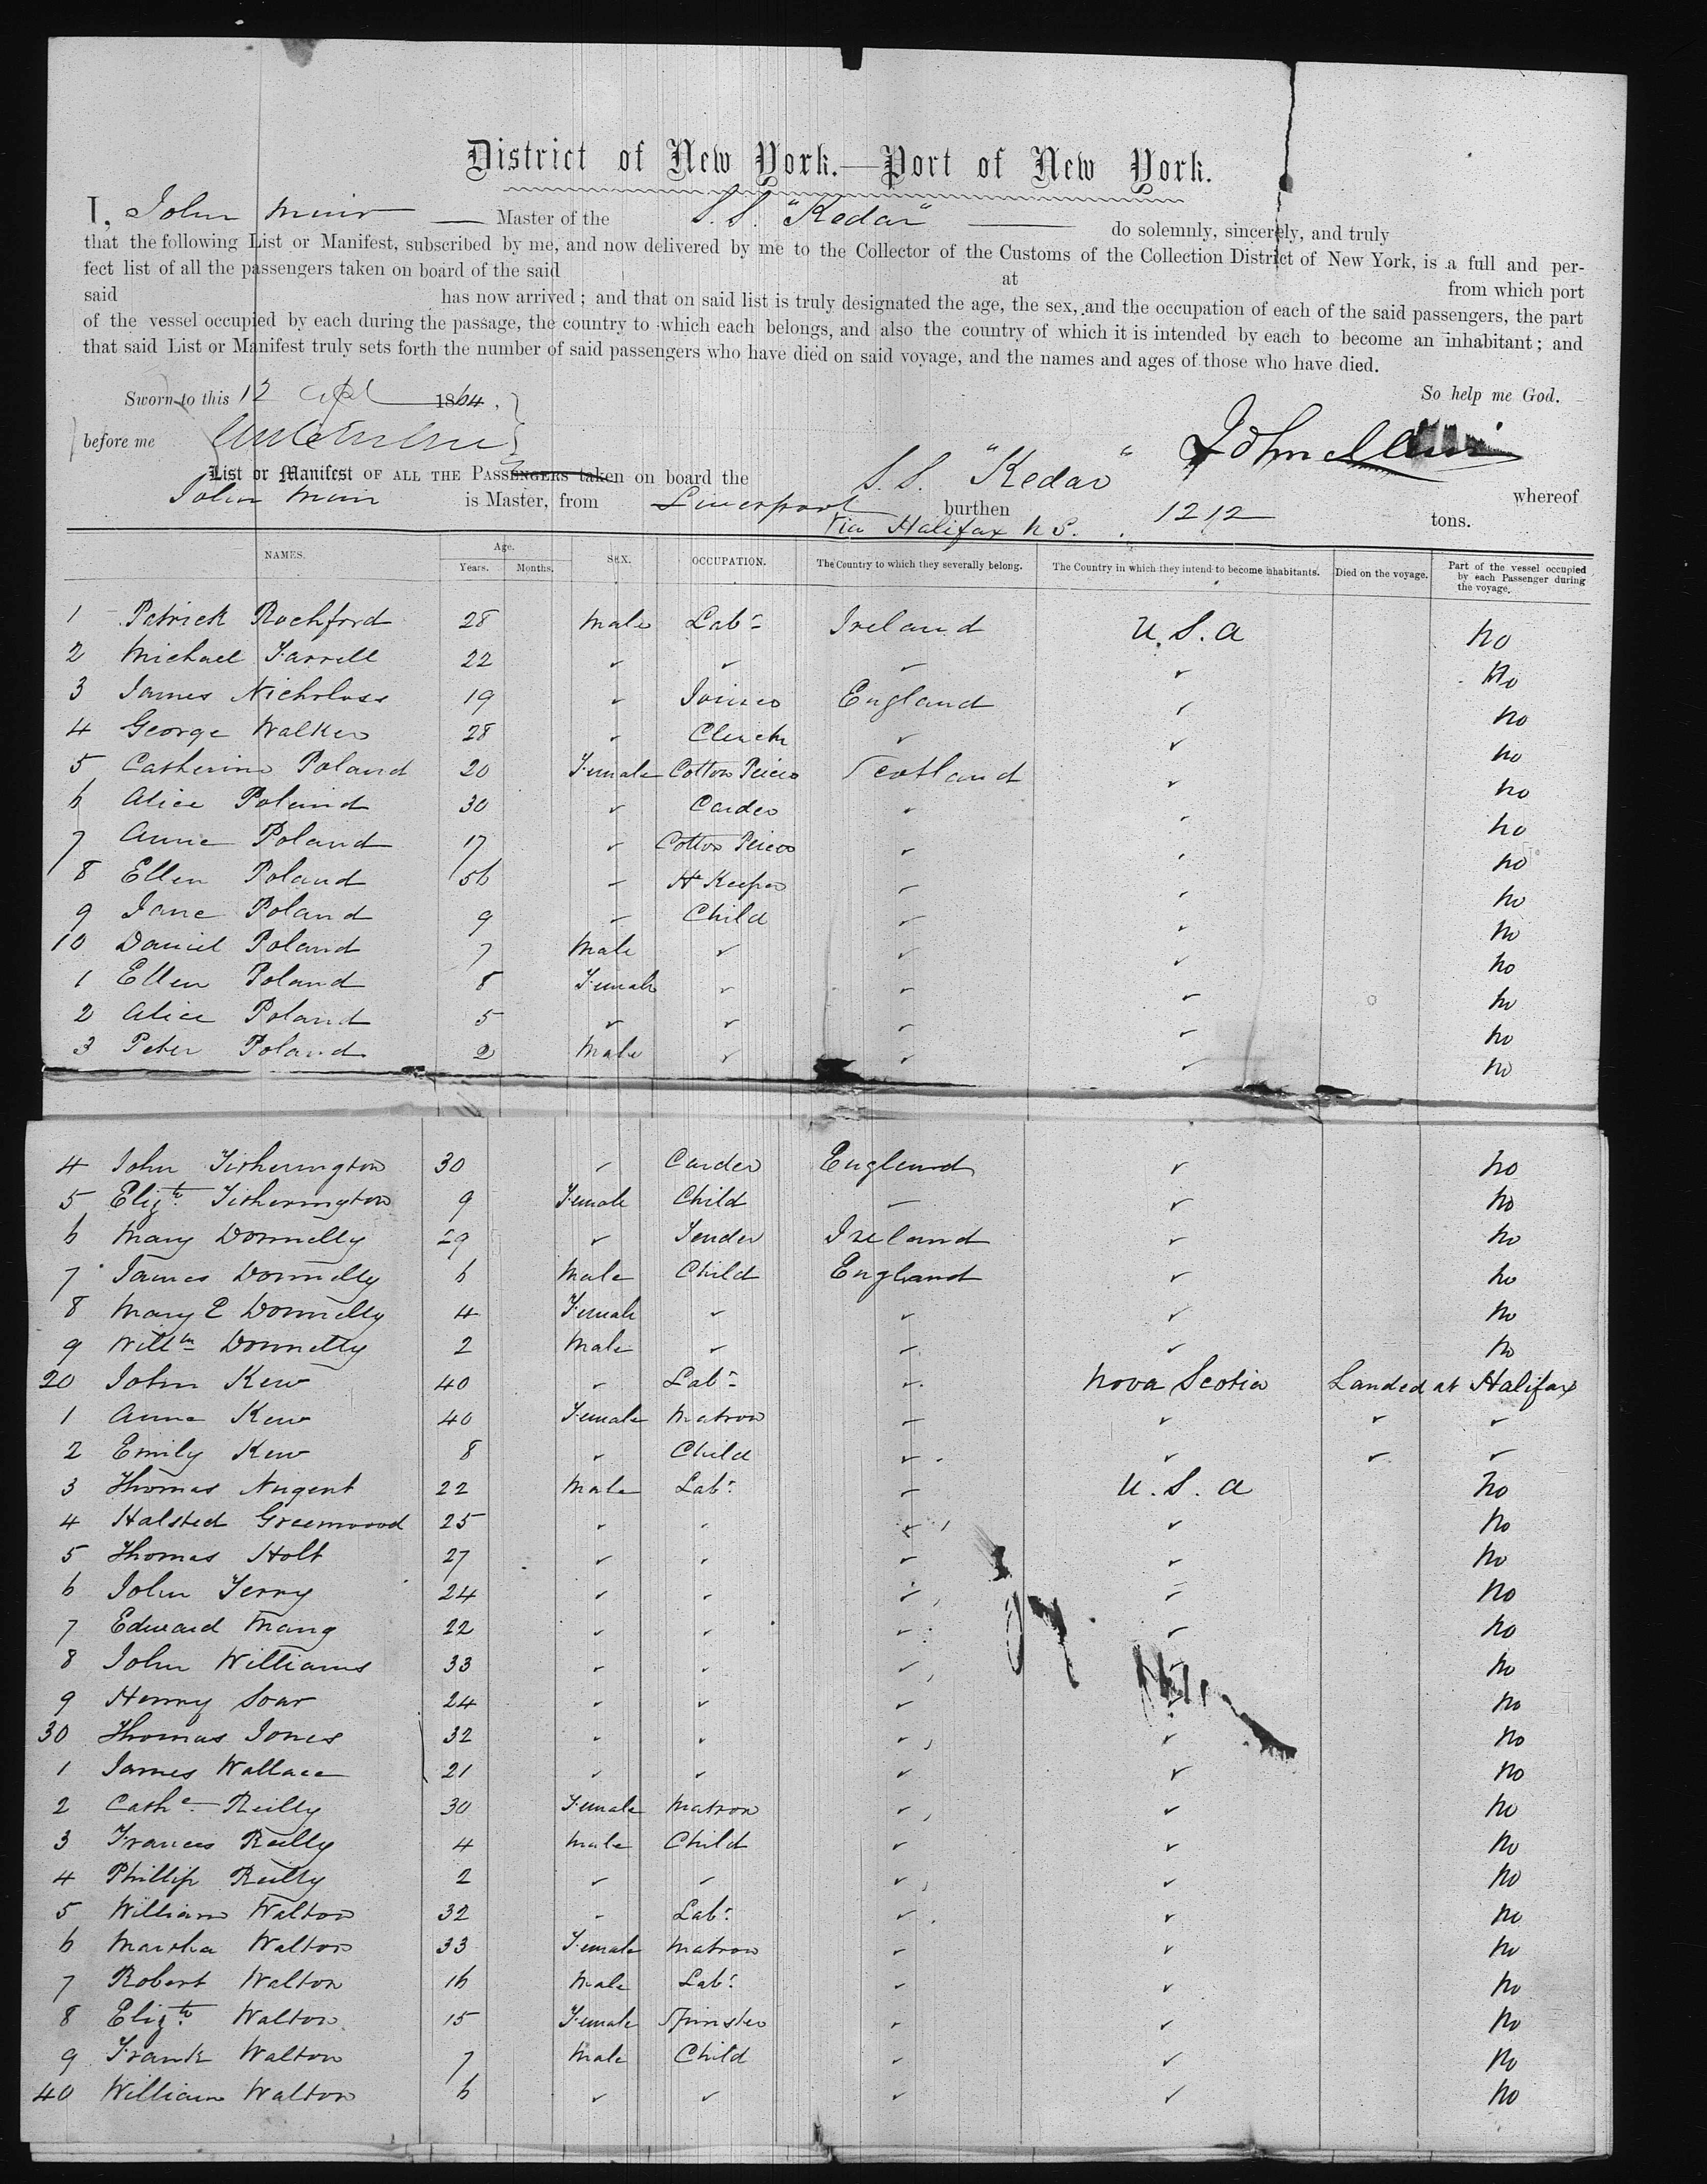 District of New York.—Port of New York.
I, John Muir — Master of the S. S. "Kedar" — do solemnly, sincerely, and truly
that the following List or Manifest, subscribed by me, and now delivered by me to the Collector of the Customs of the Collection District of New York, is a full and per-
fect list of all the passengers taken on board of the said at from which port
said has now arrived; and that on said list is truly designated the age, the sex, and the occupation of each of the said passengers, the part
of the vessel occupied by each during the passage, the country to which each belongs, and also the country of which it is intended by each to become an inhabitant; and
that said List or Manifest truly sets forth the number of said passengers who have died on said voyage, and the names and ages of those who have died.
Sworn to this 12 Apl 1864, So help me God.
before me John Muir
List or Manifest OF ALL THE PASSENGERS taken on board the S. S. "Kedar" whereof
John Muir is Master, from Liverpool burthen 1212 tons.
Via Halifax N S.
NAMES. Age. Years. Months. SEX. OCCUPATION. The Country to which they severally belong. The Country in which they intend to become inhabitants. Died on the voyage. Part of the vessel occupied by each Passenger during the voyage.
1 Patrick Rochford 28 Male Labr Ireland U.S.A No
2 Michael Farrell 22 ✓ ✓ ✓ ✓ No
3 James Nicholass 19 ✓ Joiner England ✓ No
4 George Walker 28 ✓ ✓ ✓ No
5 Catherine Poland 20 Female Cotton Peicer Scotland ✓ No
6 Alice Poland 30 ✓ Carder ✓ ✓ No
7 Anne Poland 17 ✓ Cotton Peicer ✓ ✓ No
8 Ellen Poland 56 ✓ H Keeper ✓ ✓ No
9 Jane Poland 9 ✓ Child ✓ ✓ No
10 Daniel Poland 7 Male ✓ ✓ ✓ No
1 Ellen Poland 8 Female ✓ ✓ ✓ No
2 Alice Poland 5 ✓ ✓ ✓ ✓ No
3 Peter Poland 2 Male ✓ ✓ ✓ No
4 John Titherington 30 ✓ Carder England ✓ No
5 Elizth Titherington 9 Female Child ✓ ✓ No
6 Mary Donnelly 29 ✓ Tender Ireland ✓ No
7 James Donnelly 6 Male Child England ✓ No
8 Mary E Donnelly 4 Female ✓ ✓ ✓ No
9 Willm Donnelly 2 Male ✓ ✓ ✓ No
20 John Kew 40 ✓ Labr ✓ Nova Scotia Landed at Halifax
1 Anne Kew 40 Female Matron ✓ ✓ ✓ ✓
2 Emily Kew 8 ✓ Child ✓ ✓ ✓ ✓
3 Thomas Nugent 22 Male Labr ✓ U.S.A No
4 Halsted Greenwood 25 ✓ ✓ ✓ ✓ No
5 Thomas Holt 27 ✓ ✓ ✓ ✓ No
6 John Terry 24 ✓ ✓ ✓ ✓ No
7 Edward Mang 22 ✓ ✓ ✓ ✓ No
8 John Williams 33 ✓ ✓ ✓ ✓ No
9 Henry Soar 24 ✓ ✓ ✓ ✓ No
30 Thomas Jones 32 ✓ ✓ ✓ ✓ No
1 James Wallace 21 ✓ ✓ ✓ ✓ No
2 Cathe Reilly 30 Female Matron ✓ ✓ No
3 Frances Reilly 4 Male Child ✓ ✓ No
4 Phillip Reilly 2 ✓ ✓ ✓ ✓ No
5 William Walton 32 ✓ Labr ✓ ✓ No
6 Martha Walton 33 Female Matron ✓ ✓ No
7 Robert Walton 16 Male Labr ✓ ✓ No
8 Elizth Walton 15 Female Spinster ✓ ✓ No
9 Frank Walton 7 Male Child ✓ ✓ No
40 William Walton 6 ✓ ✓ ✓ ✓ No